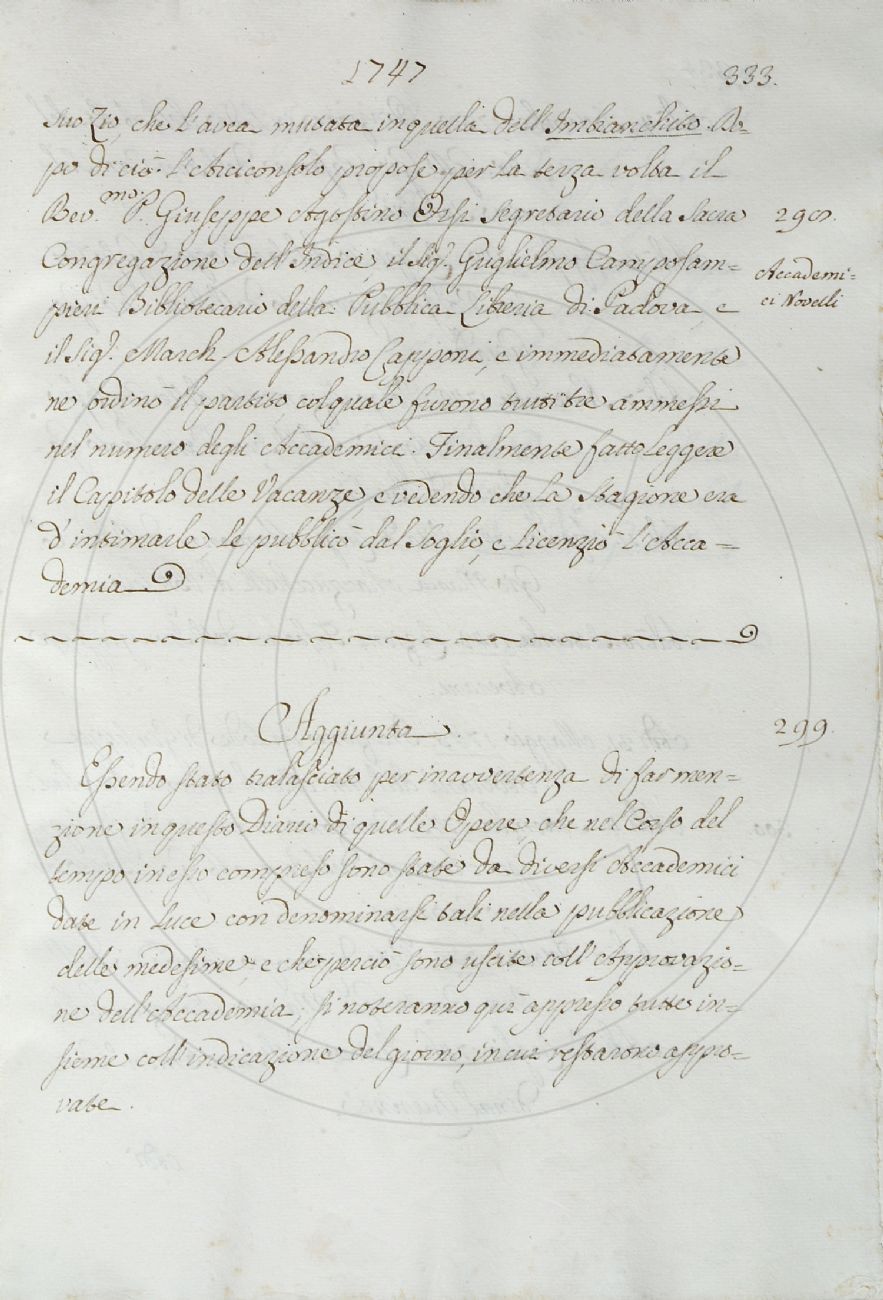 1747
333.
suo Zio, che l'avea mutata in quella dell'Imbianchito. Do=
po di ciò l'Arciconsolo propose per la terza volta il
Rev.mo P. Giuseppe Agostino Orsi Segretario della Sacra
298.
Congregazione dell'Indice, il Sig.r Guglielmo Camposam=
Accademi=
pieri Bibliotecario della Pubblica Libreria di Padova, e
ci Novelli
il Sig.r March. Alessandro Capponi, e immediatamente
ne ordinò il partito col quale furono tutti tre ammessi
nel numero degli Accademici. Finalmente fatto leggere
il Capitolo delle Vacanze, e vedendo che la Stagione era
d'intimarle, le pubblicò dal Soglio, e licenziò l'Acca=
demia
Aggiunta.
299.
Essendo stato tralasciato per inavvertenza di far men=
zione in questo Diario di quelle Opere, che nel Corso del
tempo in esso compreso sono state da diversi Accademici
date in luce con denominarsi tali nella pubblicazione
delle medesime, e che perciò sono uscite coll'Approvazio=
ne dell'Accademia, si noteranno quì appresso tutte in=
sieme coll'indicazione del giorno, in cui restarono appro=
vate.